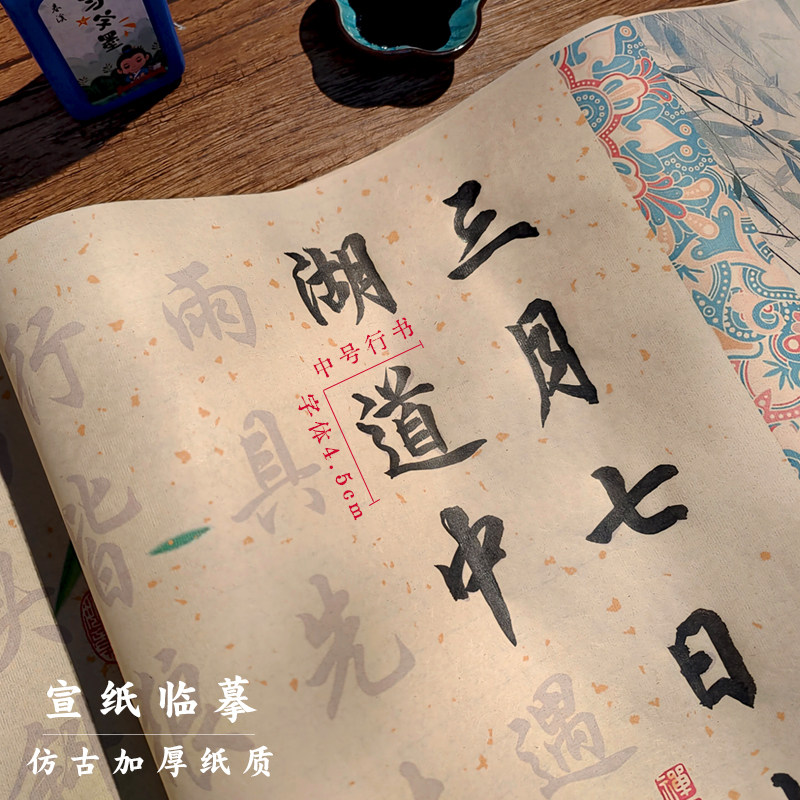 习字墨
三月七日
湖道中遇
雨具先
行皆
中号行书
字体4.5cm
禪
宣纸临摹
仿古加厚纸质